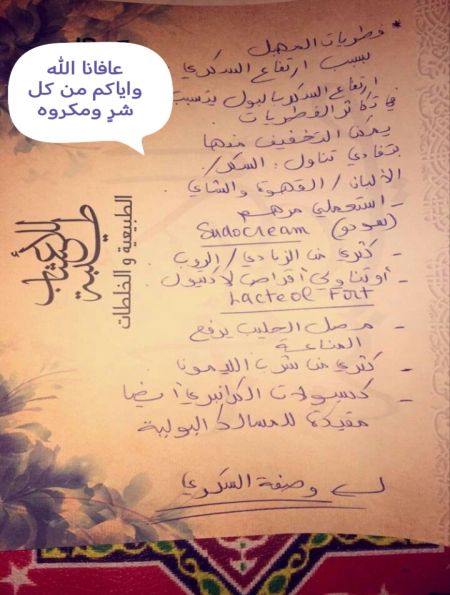 عافانا الله
واياكم من كل
شرٍ ومكروه
* فطريات المهبل
بسبب ارتفاع السكري
ارتفاع السكر بالبول يتسبب
في تكاثر الفطريات
يمكن التخفيف منها
بتفادي تناول : السكر /
الألبان / القهوة والشاي /
- استعملي مرهم
(سودو) Sudocream
- كثري من الزبادي / الروب
- أو تناولي أقراص لاكتيول
Lacteol Fort
- مصل الحليب يرفع
المناعة
- كثري من شرب الليمون
- كبسولات الكرانبري أيضا
مفيدة للمسالك البولية
وصفة السكري
طبيبة الأعشاب
الطبيعية و الخلطات